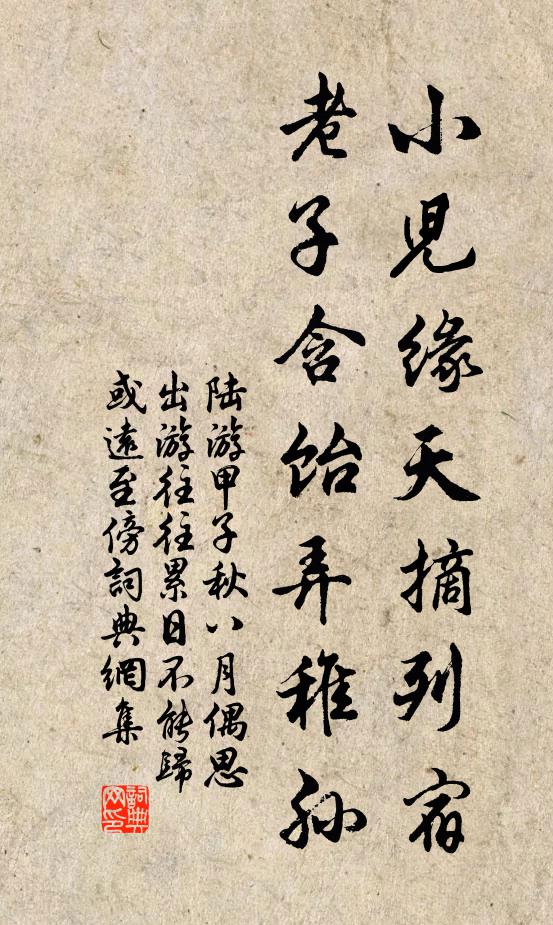 小兒緣天摘列宿
老子含飴弄稚孫
陆游甲子秋八月偶思
出游往往累日不能歸
或遠至傍詞典網集
詞典
网印